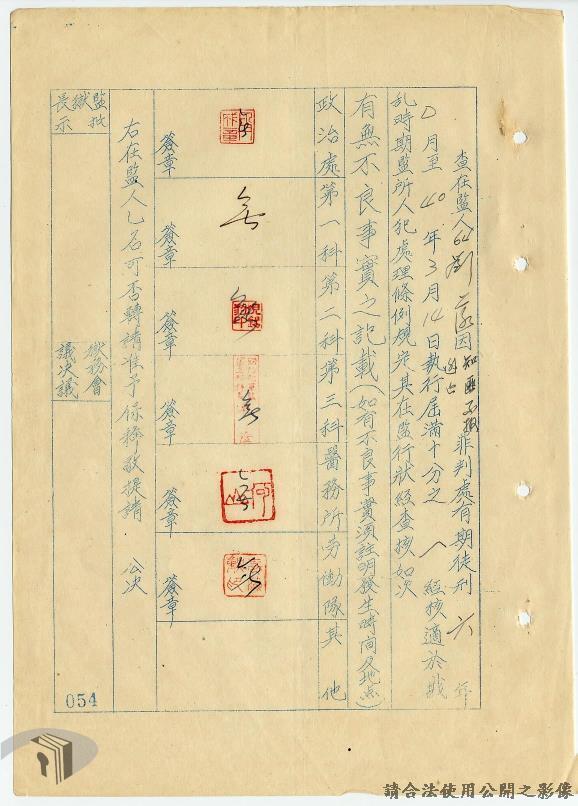 查在監人64劉　因知匪不報罪判處有期徒刑六年
0月至40年3月14日執行屆滿十分之八經核適於戡
亂時期監所人犯處理條例規定其在監行狀經查核如次
有無不良事實之記載(如有不良事實須註明發生時間及地點)
政治處第一科第二科第三科醫務所勞働隊其他
無
簽章
無
簽章
無
簽章
無
簽章
無
簽章
無
簽章
右在監人乙名可否轉請准予保釋敬提請 公決
監獄長批示
獄務會議決議
054
請合法使用公開之影像